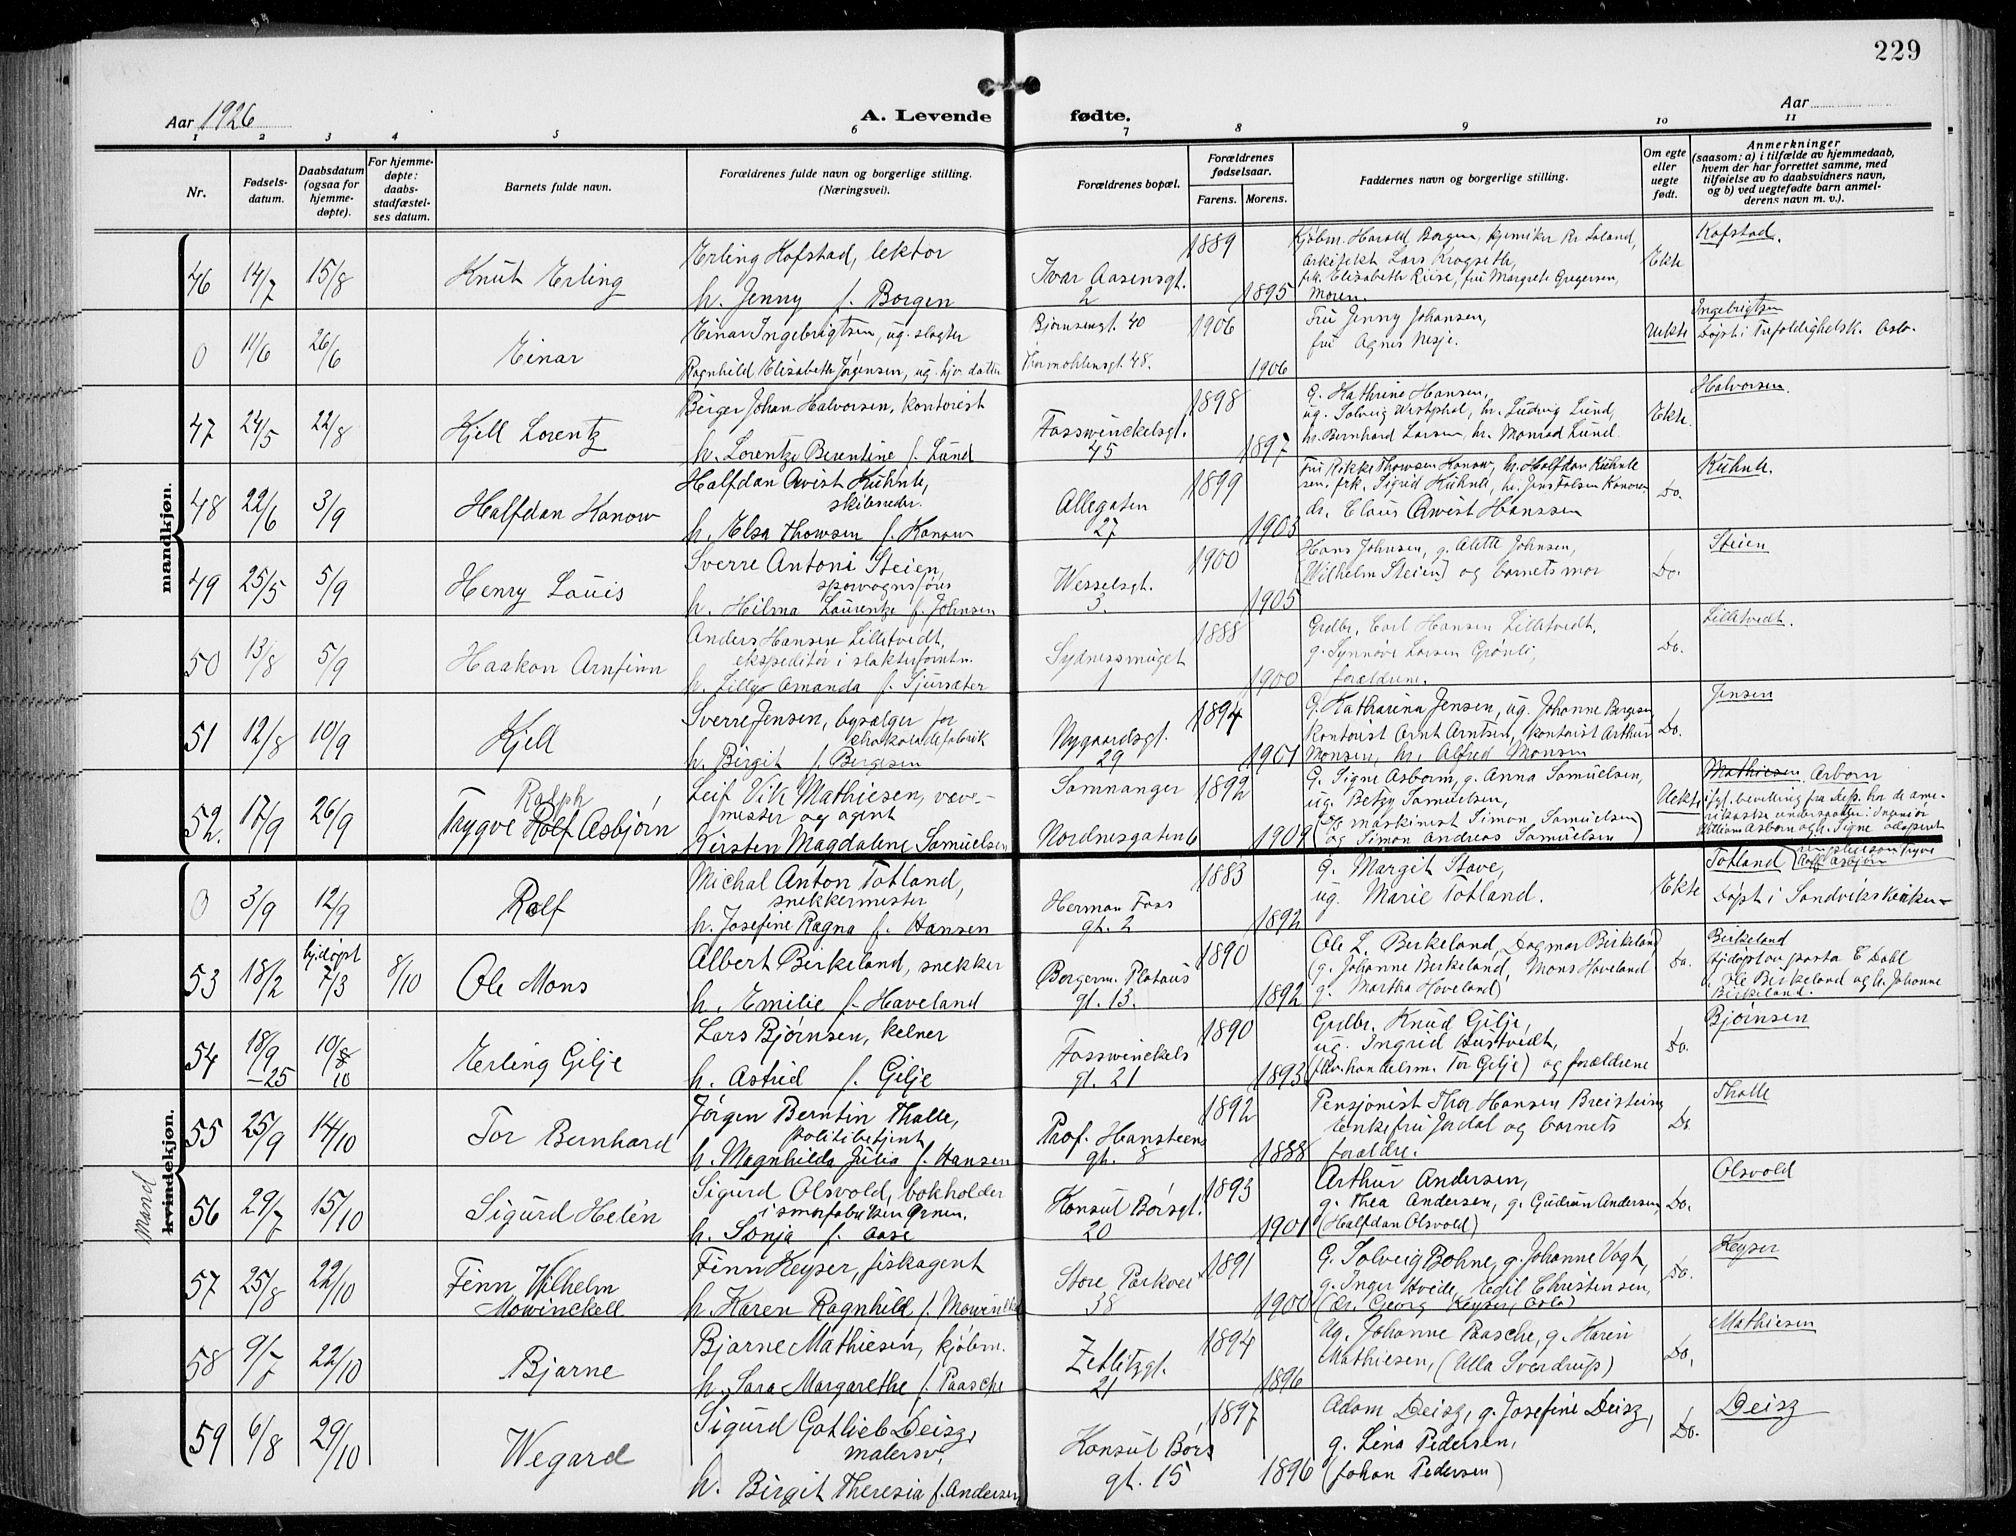 229
Aar 1926
A. Levende fødte.
Aar
1 2 3 4 5 6 7 8 9 10 11
Nr.
Fødsels-datum.
Daabsdatum (ogsaa for hjemme-døpte).
For hjemme-døpte: daabs-stadfæstel-ses datum.
Barnets fulde navn.
Forældrenes fulde navn og borgerlige stilling. (Næringsvei).
Forældrenes bopæl.
Forældrenes fødselsaar.
Farens. Morens.
Faddernes navn og borgerlige stilling.
Om egte eller uegte født.
Anmerkninger (saasom: a) i tilfælde av hjemmedaab, hvem der har forrettet samme, med tilføielse av to daabsvidners navn, og b) ved uegtefødte barn anmel-derens navn m. v.).
mandkjøn.
46 14/7 15/8 Knut Erling
Erling Hofstad, lektor
h. Jenny f. Borgen
Ivar Aasensgt. 2
1889 1895
Kjøbm. Harald Borgen, kjemiker Kr. Laland,
arkitekt Lars Krogseth,
frk. Elizabeth Riise, fru Margrete Gregersen,
Moren.
Ekte
Hofstad.
0 11/6 26/6 Einar
Einar Ingebrigtsen, ug. slagter
Ragnhild Elizabeth Jørgensen, ug.
Bjørnsengt. 40
48.
1906 1906
Fru Jenny Johansen,
fru Agnes Nesje.
Uekte
Ingebrigtsen
Døpt i Trefoldighetsk. Oslo.
47 24/5 22/8 Kjell Lorentz
Birger Johan Halvorsen, kontorist
h. Lorentze Berentine f. Lund
Fosswinckelsgt. 45
1898 1897
G. Kathrine Hansen,
ug. Solveig Westphal, hr. Ludvig Lund,
hr. Bernhard Larsen, hr. Monrad Lund.
Ekte.
Halvorsen.
48 22/6 3/9 Halfdan Konow
Halfdan Qvist Kuhnle,
skibsreder.
h. Elsa Thowsen f. Konow
Allegaten 27
1899 1903
Fru Rikke Thowsen Konow, hr. Halfdan Kuhnle
sen. frk. Sigrid Kuhnle, hr. Jens Folsen Konow.
dr. Claus Qvist Hanssen
Do.
Kuhnle.
49 25/5 5/9 Henry Louis
Sverre Antoni Steien,
sporvognsfører
h. Hilma Laurentze f. Johnsen
Wesselsgt. 3.
1900 1905
Hans Johnsen, g. Alette Johnsen,
(Wilhelm Steien) og barnets mor
Do.
Steien
50 13/8 5/9 Haakon Arnfinn
Anders Hansen Lilletvedt,
ekspeditør i slakterforretn.
h. Lilly Amanda f. Sjursæter
Sydnessmuget 1
1888 1900
Grdbr. Carl Hansen Lilletvedt,
g. Synnøve Larsen Grønli,
forældrene.
Do.
Lilletvedt.
51 12/8 10/9 Kjell
Sverre Jensen, bysælger for
chokoladefabrik
h. Birgit f. Bergesen
Nygaardsgt. 29
1894 1901
G. Katharina Jensen, ug. Johanne Bergesen,
kontorist Arnt Arntsen, kontorist Arthur
Monsen, hr. Alfred Monsen
Do.
Jensen
52. 17/9 26/9 Ralph
Trygve Rolf Asbjørn
Leif Vik Mathiesen, væve-
mester og agent
Kirsten Magdalene Samuelsen
Samnanger
Nordnesgaten 6
1892 1909
G. Signe Asborn, g. Anna Samuelsen,
ug. Betzy Samuelsen,
(og maskinist Simon Samuelsen)
(og Simon Andreas Samuelsen
Uekte
Mathiesen. Asborn
ifgl. bevilling fra Dep. har de ame-
rikanske undersaatter: Ingeniør
William Asborn og h. Signe adoptert
Trygve
Rolf Asbjørn
Mand
kvindekjøn.
0 3/9 12/9 Rolf
Michal Anton Totland,
snekkermester
h. Josefine Ragna f. Hansen
Herman Foss gt. 2
1883 1892
G. Margit Stave,
ug. Marie Totland.
Ekte
Totland
Døpt i Sandvikskirken
53 18/2 hj.døpt 7/3 8/10 Ole Mons
Albert Birkeland, snekker
h. Emilie f. Haveland
Borgerm. Platous gt. 13.
1890 1892
Ole L. Birkeland, Dagmar Birkeland
(g. Johanne Birkeland, Mons Hoveland
g. Martha Hoveland)
Do.
Birkeland
Hjdøpt av pastor E Dahl
Ole Birkeland og h. Johanne
Birkeland.
54 18/9 -25 10/8 10 Erling Gilje
Lars Bjørnsen, kelner
h. Astrid f. Gilje
Fosswinckels gt. 21
1890 1893
Grdbr. Knud Gilje,
ug. Ingrid Lustvedt,
(Tor Gilje) og forældrene
Do.
Bjørnsen
55 25/9 14/10 Tor Bernhard
Jørgen Berntin Thalle,
politibetjent
h. Magnhilda Julia f. Hansen
Prof. Hansteens gt. 8
1892 1888
Pensjonist Thor Hansen Breistein,
Enkefru Jordal og barnets
forældre.
Do.
Thalle
56 29/7 15/10 Sigurd Helén
Sigurd Olsvold, bokholder
i smørfabrikken Ørnen.
h. Sonja f. Aase
Konsul Børsgt. 20
1893 1901
Arthur Andersen,
g. Thea Andersen, g. Gudrun Andersen,
(Halfdan Olsvold)
Do.
Olsvold
57 25/8 22/10 Finn Wilhelm
Mowinckell
Finn Keyser, fiskagent
h. Karen Ragnhild f. Mowinckel
Store Parkvei 38
1891 1900
G. Solveig Bohne, g. Johanne Vogt,
g. Inger Hvide, Edil Christensen,
(dr. Georg Keyser, Oslo)
Do.
Keyser
58 9/7 22/10 Bjarne
Bjarne Mathiesen, kjøbm.
h. Sara Margarethe f. Paasche
Zetlitzgt. 21
1894 1896
Ug. Johanne Paasche, g. Karen
Mathiesen, (Ulla Sverdrup)
Do.
Mathiesen
59 6/8 29/10 Wegard
Sigurd Gotlieb Deisz,
malersv.
h. Birgit Theresia f. Andersen
Konsul Børs gt. 15
1897 1896
Adam Deisz, g. Josefine Deisz,
g. Lina Pedersen,
(Johan Pedersen)
Do.
Deisz